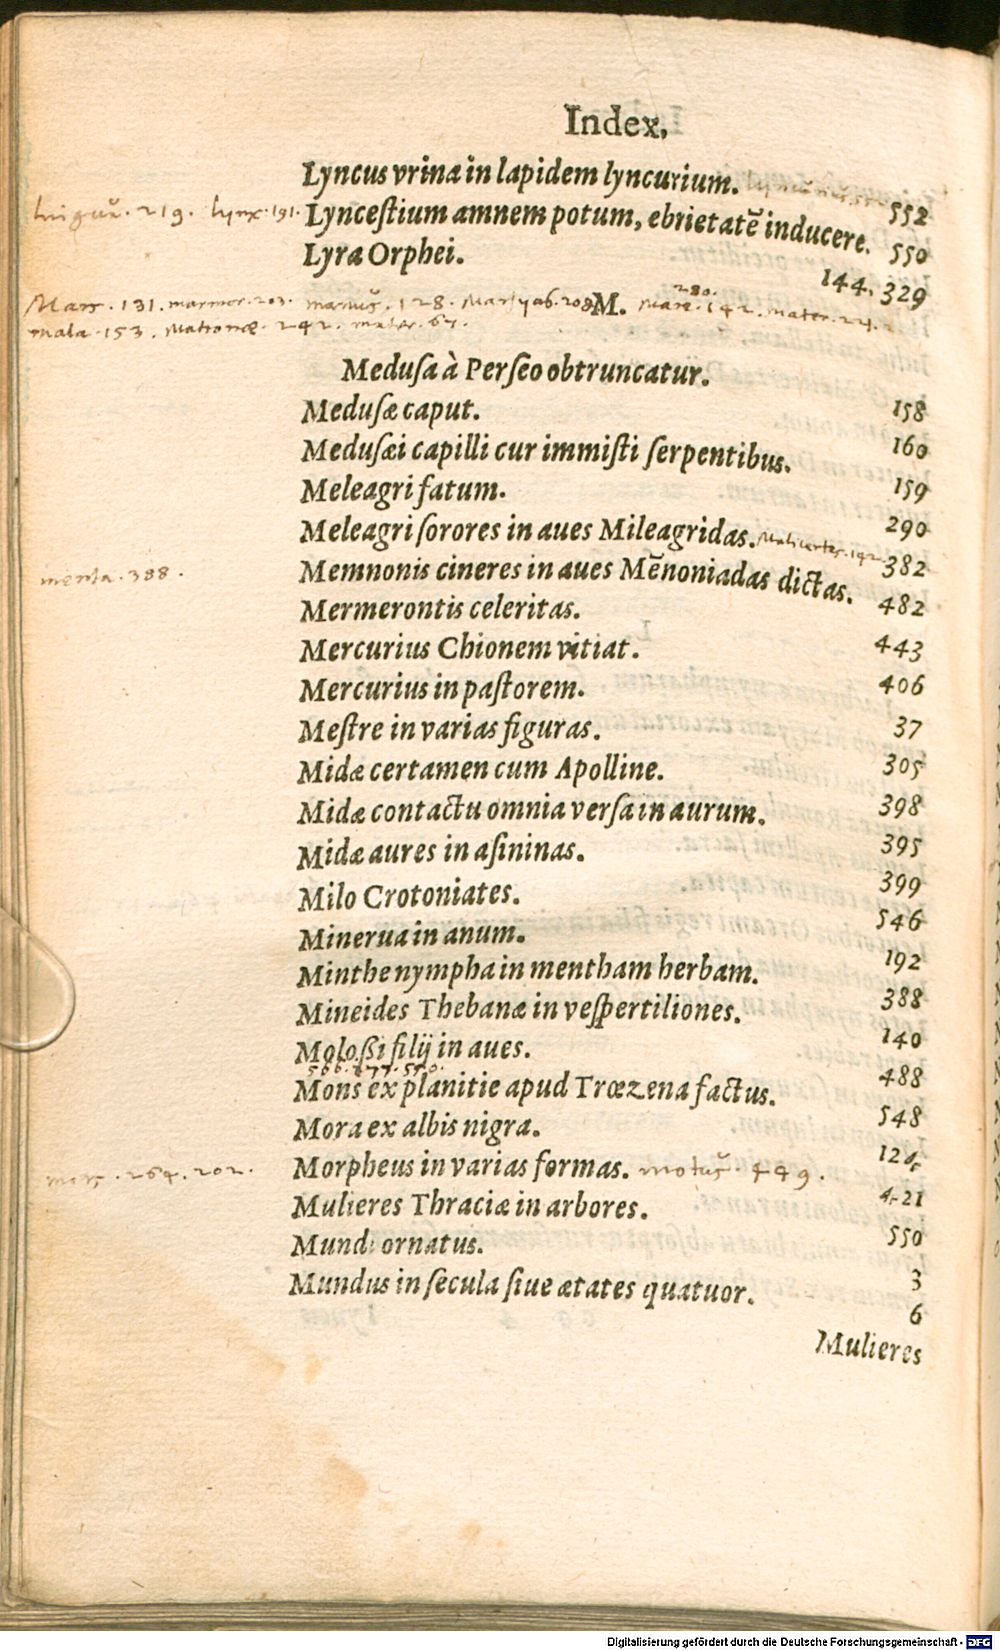 Index.
Lyncus vrina in lapidem lyncurium. 552
lynx. 191. Lyncestium amnem potum, ebrietatē inducere. 550
Lyra Orphei. 144. 329
Mars. 131. marmor. 203. manus. 128. Marsyas. 208 M. 280. Mare. 142. mater. 24.
mala. 153. Matronæ. 242. mater. 67.
Medusa à Perseo obtruncatur. 158
Medusæ caput. 160
Medusæi capilli cur immisti serpentibus. 159
Meleagri fatum. 290
Meleagri sorores in aues Mileagridas. Melicertes. 142. 382
menta. 388. Memnonis cineres in aues Mēnoniadas dictas. 482
Mermerontis celeritas. 443
Mercurius Chionem vitiat. 406
Mercurius in pastorem. 37
Mestre in varias figuras. 305
Midæ certamen cum Apolline. 398
Midæ contactu omnia versa in aurum. 395
Midæ aures in asininas. 399
Milo Crotoniates. 546
Minerua in anum. 192
Minthe nympha in mentham herbam. 388
Mineides Thebanæ in vespertiliones. 140
Molossi filij in aues. 488
Mons ex planitie apud Trœzena factus. 548
Mora ex albis nigra. 124
mors. 264. 202. Morpheus in varias formas. motus. 449. 421
Mulieres Thraciæ in arbores. 550
Mundi ornatus. 3
Mundus in secula siue ætates quatuor. 6
Mulieres
Digitalisierung gefördert durch die Deutsche Forschungsgemeinschaft - DFG